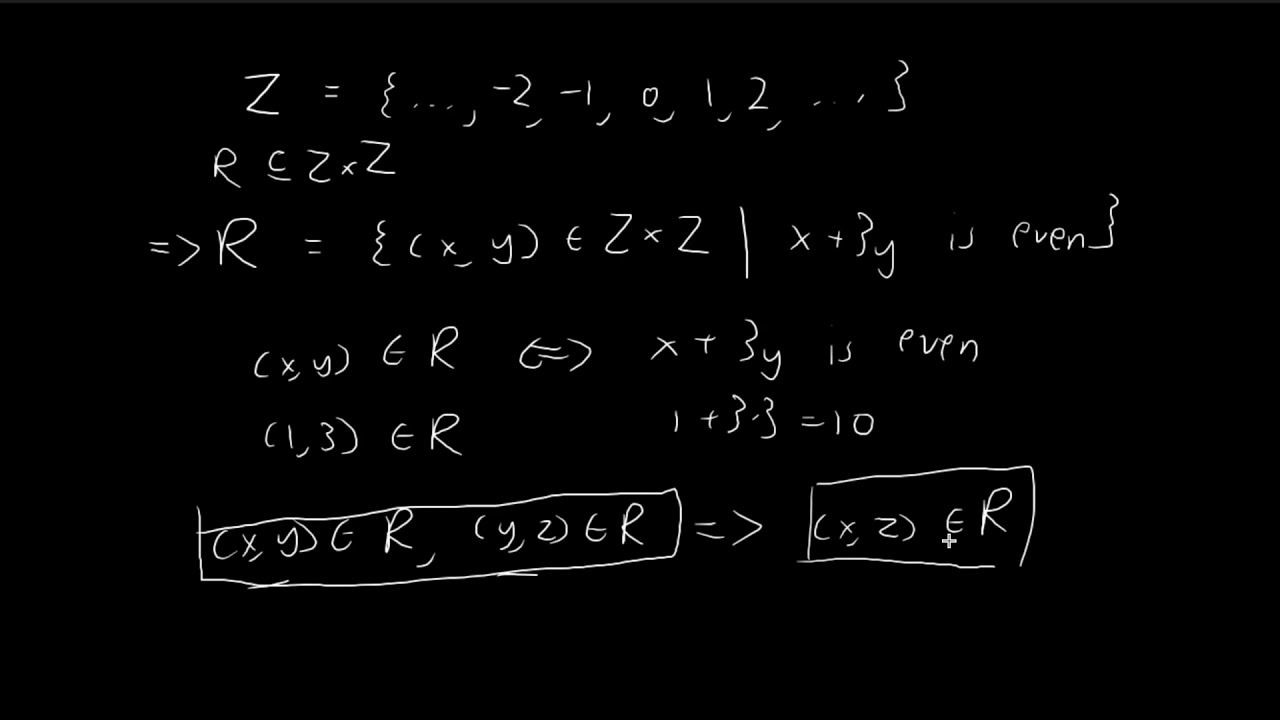 Z = {..., -2, -1, 0, 1, 2, ...}
R ⊆ Z×Z
=> R = {(x, y) ∈ Z×Z | x+3y is even}
(x,y) ∈ R <=> x+3y is even
(1,3) ∈ R 1+3·3 = 10
(x,y) ∈ R, (y,z) ∈ R => (x,z) ∈ R